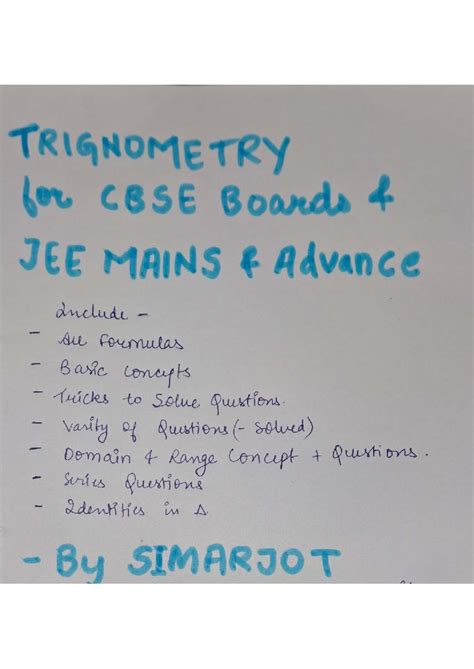 TRIGNOMETRY
for CBSE Boards &
JEE MAINS & Advance
Include -
- All Formulas
- Basic Concepts
- Tricks to Solve Questions.
- Varity of Questions (- Solved)
- Domain & Range Concept + Questions.
- Series Questions
- Identities in Δ
- By SIMARJOT